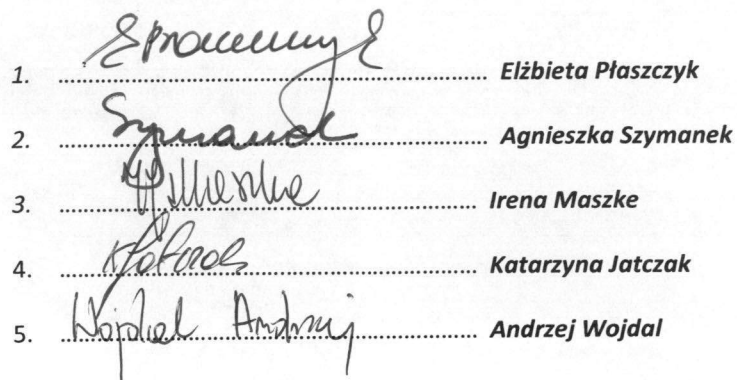 1. ........................ Elżbieta Płaszczyk
2. Szymanek ........................ Agnieszka Szymanek
3. Maszke ........................ Irena Maszke
4. ........................ Katarzyna Jatczak
5. Wojdal Andrzej ........................ Andrzej Wojdal